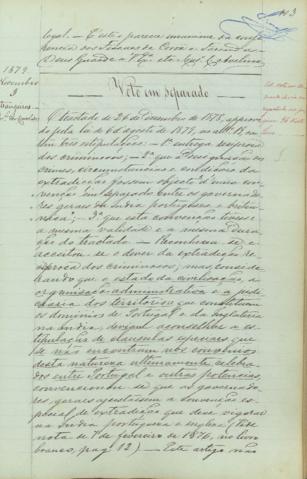 legal. — E este o parecer unanime da conferencia
Deus Guarde a V. Exª.
1879
Novembro
9
Estrangeiros
Voto em separado
O tractado de 26 de Dezembro de 1878, approvado
pela lei de 6 d'agosto de 1879, no art.
tem tres estipulações: — 1ª entrega reciproca
dos criminosos; — 2ª que
crimes, circumstancias e condições da
extradicção fossem objecto d'uma convenção
em separado entre os governadores
geraes da India portugueza e britannica;
— 3ª que esta convenção tivesse
a mesma validade e a mesma duração
do tractado. — Reconheceu-se e
acceitou-se o dever da extradicção reciproca
dos criminosos; mas, considerando
que o estado da civilisação, a
organisação administrativa e a judiciaria
dos territorios que constituem
os dominios de Portugal e da Inglaterra
na India, deviam aconselhar a estipulação
de clausulas especiaes que
se não encontram nos convenios
desta natureza ultimamente celebrados
entre Portugal e outras potencias,
convencionou-se que os governadores
geraes ajustassem a convenção especial
de extradicção que deve vigorar
na India portugueza e ingleza (vide
nota de 7 de fevereiro de 1876, no livro
branco, pag. 12) — Este artigo não